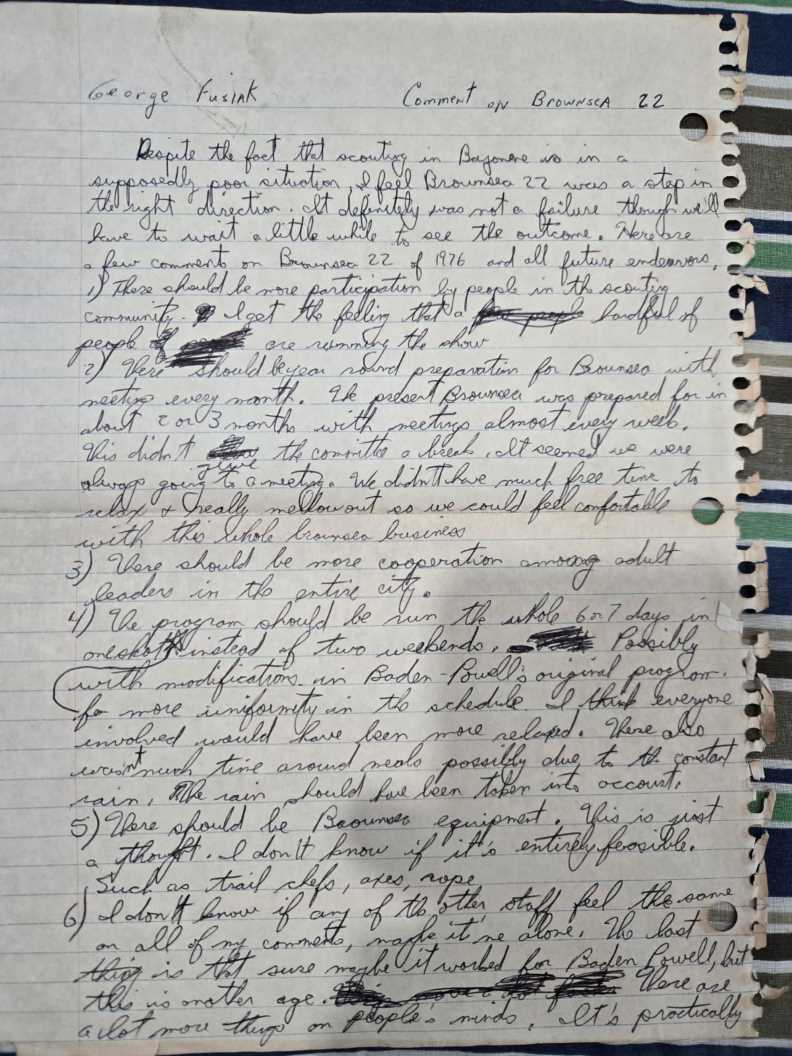 George Fusiak Comment on Brownsea 22
Despite the fact that scouting in Bayonne is in a
supposedly poor situation, I feel Brownsea 22 was a step in
the right direction. It definitely was not a failure though we'll
have to wait a little while to see the outcome. Here are
a few comments on Brownsea 22 of 1976 and all future endeavors.
1) There should be more participation by people in the scouting
community. I get the feeling that a handful of
people are running the show
2) There should be year round preparation for Brownsea with
meetings every month. The present Brownsea was prepared for in
about 2 or 3 months with meetings almost every week.
This didn't give the committe a break. It seemed we were
always going to a meeting. We didn't have much free time to
relax & really mellow out so we could feel comfortable
with this whole brownsea business
3) There should be more cooperation among adult
leaders in the entire city.
4) The program should be run the whole 6 or 7 days in
one shot instead of two weekends. Possibly
with modifications in Baden-Powell's original program.
for more uniformity in the schedule I think everyone
involved would have been more relaxed. There also
wasn't much time around meals possibly due to the constant
rain. The rain should have been taken into account.
5) There should be Brownsea equipment. This is just
a thought. I don't know if it's entirely feasible.
Such as trail chefs, axes, rope
6) I don't know if any of the other staff feel the same
on all of my comments, maybe it me alone. The last
thing is that sure maybe it worked for Baden Powell, but
this is another age. There are
a lot more things on people's minds. It's practically